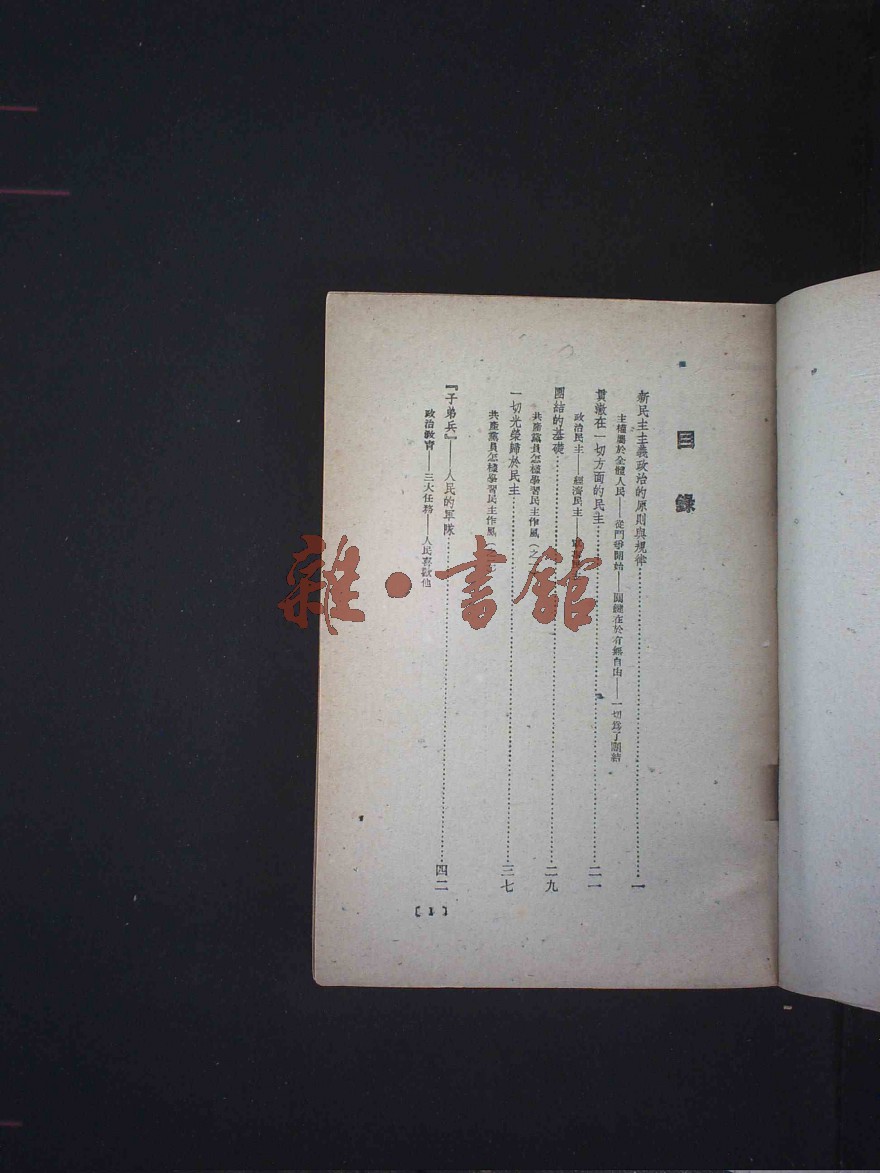 目錄
新民主主義政治的原則與規律……一
主權屬於全體人民——從鬥爭開始——關鍵在於有無自由——一切爲了團結
貫澈在一切方面的民主……二一
政治民主——經濟民主——
團結的基礎……二九
共產黨員怎樣學習民主作風（之
一切光榮歸於民主……三七
共產黨員怎樣學習民主作風（
『子弟兵』——人民的軍隊……四二
政治教育——三大任務——人民喜歡他
〔1〕
雜·書館